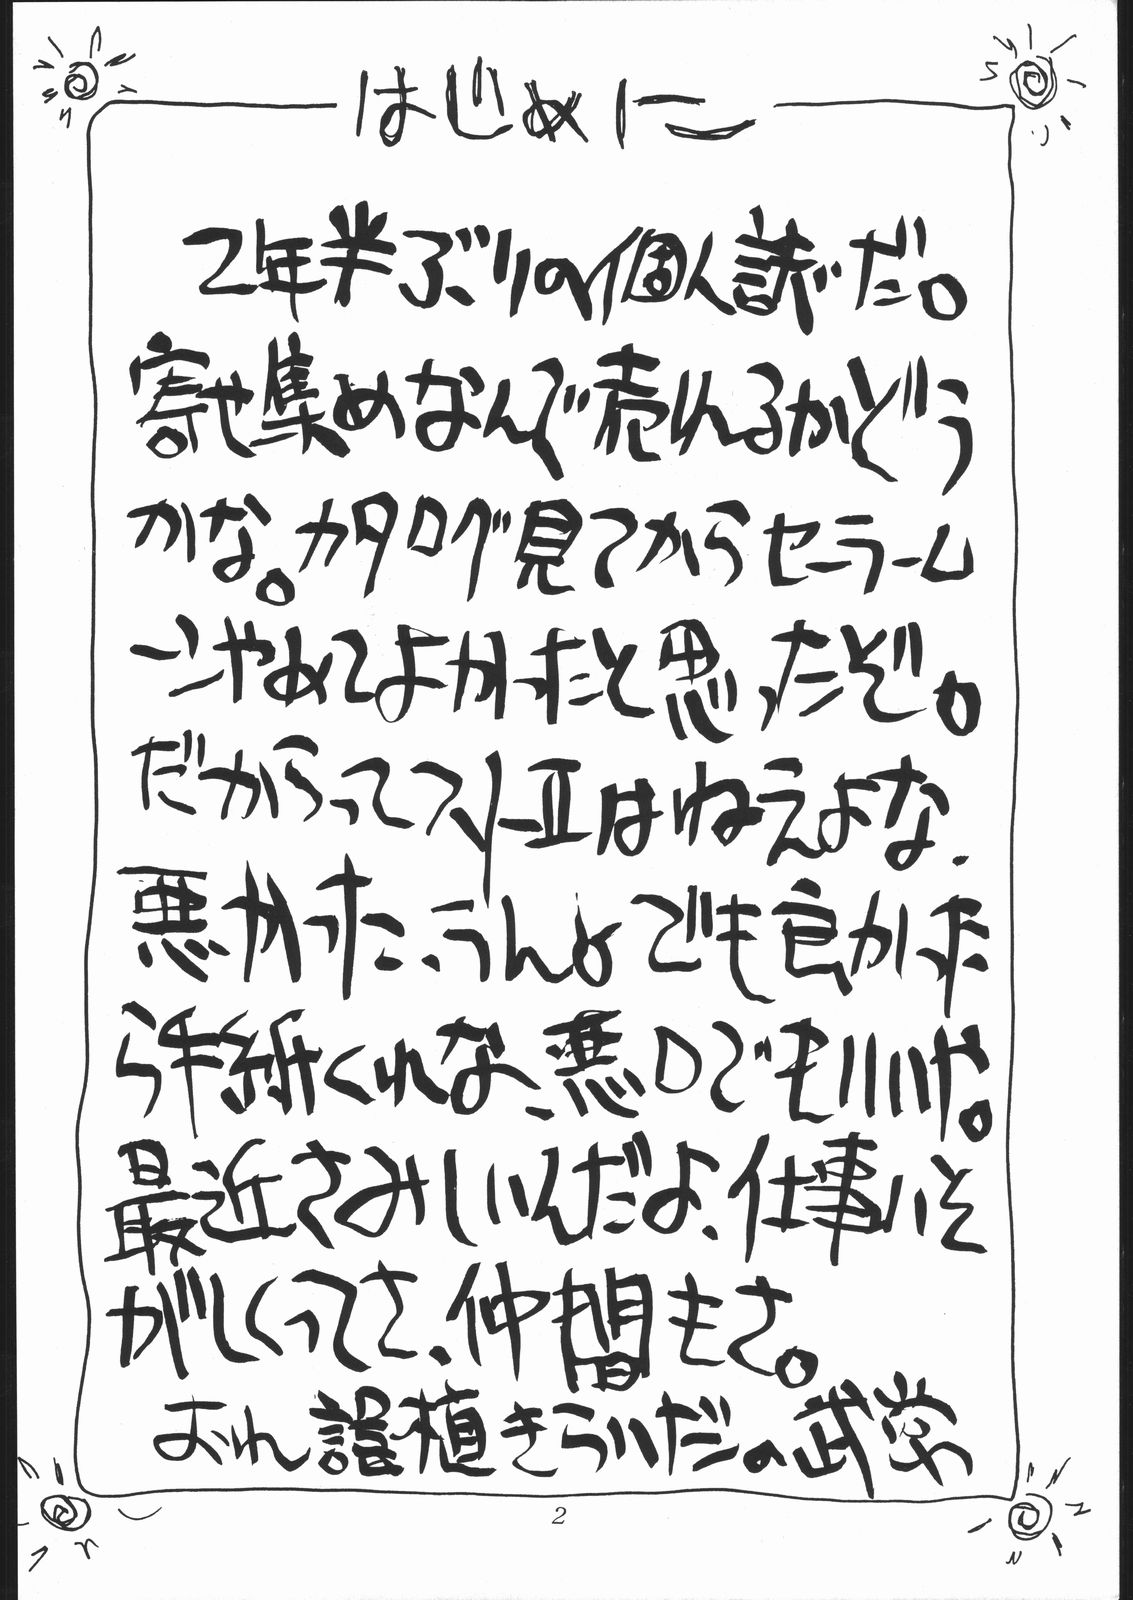 はじめに
2年半ぶりの個人誌だ。
寄せ集めなんで売れるかどう
かな。カタログ見てからセーラーム
ーンやめてよかったと思ったぞ。
だからってスリーエはねえよな.
悪かった、うんよでも良かった
ら手紙くれな、悪口でもいいや。
最近さみしいんだよ、仕事いそ
がしくってさ、仲間もさ。
おれ誤植きらいだ。武学
2